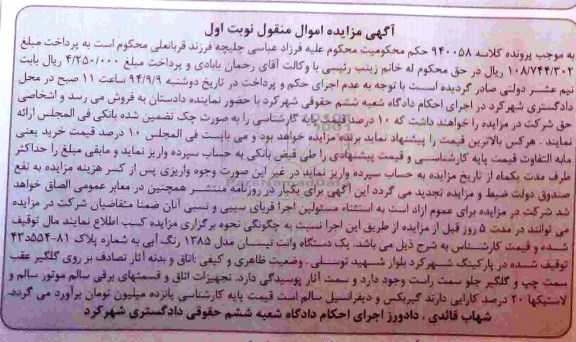 آگهی مزایده اموال منقول نوبت اول
به موجب پرونده کلاسه ۹۴۰۰۵۸ حکم محکومیت محکوم علیه فرزاد عباسی چلیچه فرزند قربانعلی محکوم است به پرداخت مبلغ
۱۰۸/۷۴۴/۳۰۲ ریال در حق محکوم له خانم زینب رئیسی با وکالت آقای رحمان بابادی و پرداخت مبلغ ۴/۲۵۰/۰۰۰ ریال بابت
نیم عشر دولتی صادر گردیده است با توجه به عدم اجرای حکم و پرداخت در تاریخ دوشنبه ۹۴/۹/۹ ساعت ۱۱ صبح در محل
دادگستری شهرکرد در اجرای احکام دادگاه شعبه ششم حقوقی شهرکرد با حضور نماینده دادستان به فروش می رسد و اشخاصی
حق شرکت در مزایده را خواهند داشت که ۱۰ درصد قیمت پایه کارشناسی را به صورت چک تضمین شده بانکی فی المجلس ارائه
نمایند. هرکس بالاترین قیمت را پیشنهاد نماید برنده مزایده خواهد بود و می بایست فی المجلس ۱۰ درصد قیمت خرید یعنی
مابه التفاوت قیمت پایه کارشناسی و قیمت پیشنهادی را طی فیش بانکی به حساب سپرده واریز نماید و مابقی مبلغ را حداکثر
ظرف مدت یکماه از تاریخ مزایده به حساب سپرده واریز نماید در غیر این صورت وجوه واریزی پس از کسر هزینه مزایده به نفع
صندوق دولت ضبط و مزایده تجدید می گردد این آگهی برای یکبار در روزنامه منتشر همچنین در معابر عمومی الصاق خواهد
شد شرکت در مزایده برای عموم آزاد است به استثناء مسئولین اجرا قربای سببی و نسبی آنان ضمنا متقاضیان شرکت در مزایده
می توانند در مدت ۵ روز قبل از مزایده از طریق این اجرا نسبت به چگونگی نحوه برگزاری مزایده کسب اطلاع نمایند مال توقیف
شده و قیمت کارشناس به شرح ذیل می باشد. یک دستگاه وانت نیسان مدل ۱۳۸۵ رنگ آبی به شماره پلاک ۸۱-۴۳د۵۵۴
توقیف شده در پارکینگ شهرکرد بلوار شهید توسلی. وضعیت ظاهری و کیفی: اتاق و بدنه آثار تصادف بر روی گلگیر عقب
سمت چپ و گلگیر جلو سمت راست وجود دارد و سمت آثار پوسیدگی دارد. تجهیزات اتاق و قسمتهای برقی سالم موتور سالم و
لاستیکها ۲۰ درصد کارایی دارند گیربکس و دیفرانسیل سالم است قیمت پایه کارشناسی پانزده میلیون تومان برآورد می گردد.
شهاب قائدی . دادورز اجرای احکام دادگاه شعبه ششم حقوقی دادگستری شهرکرد